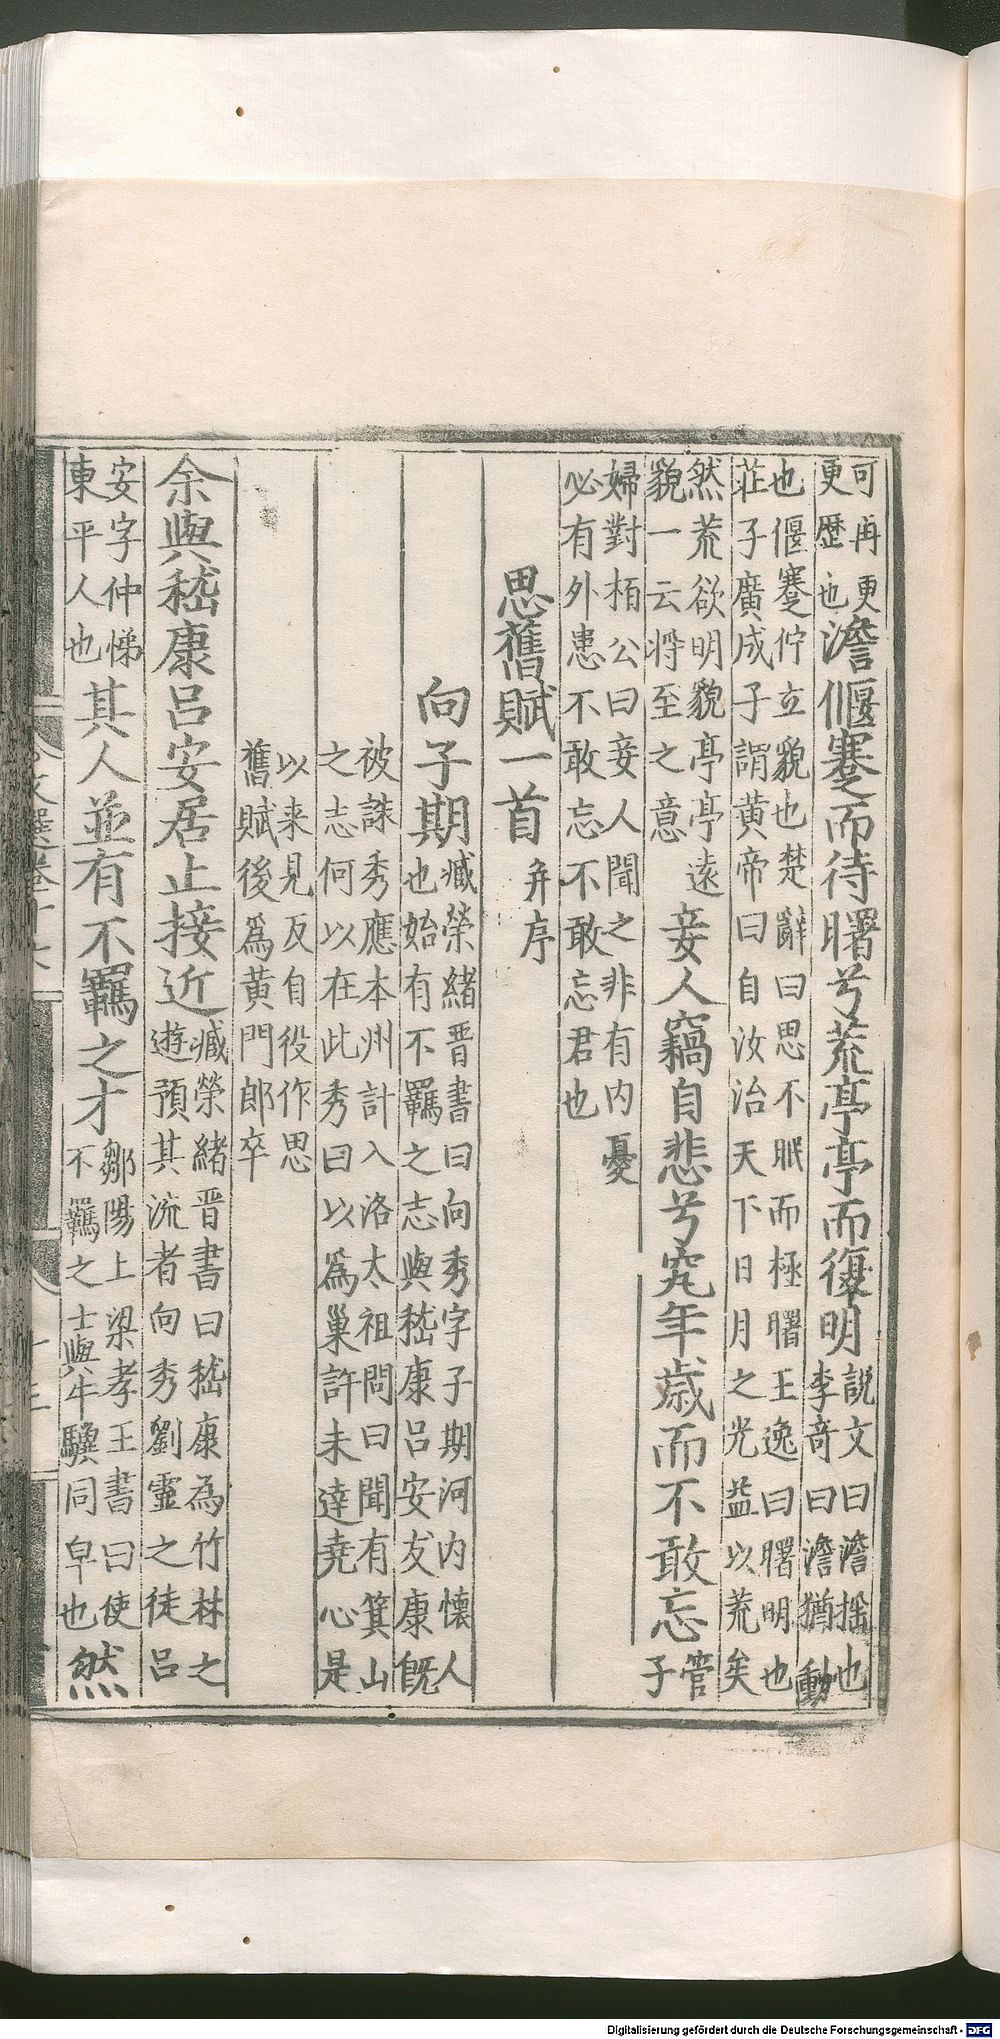 可再更
更歷也
澹偃蹇而待曙兮荒亭亭而復明
説文曰澹揺也
李奇曰澹猶動
也偃蹇佇立貌也楚辭曰思不眠而極曙王逸曰曙明也
荘子廣成子謂黄帝曰自汝治天下日月之光益以荒矣
然荒欲明貌亭亭遠
貌一云将至之意
妾人竊自悲兮究年歳而不敢忘
管
子
婦對栢公曰妾人聞之非有内憂
必有外患不敢忘不敢忘君也
思舊賦一首
并序
向子期
臧榮緒晋書曰向秀字子期河内懐人
也始有不羈之志與嵇康吕安友康既
被誅秀應本州計入洛太祖問曰聞有箕山
之志何以在此秀曰以爲巢許未達堯心是
以来見反自役作思
舊賦後爲黄門郎卒
余與嵇康吕安居止接近
臧榮緒晋書曰嵇康為竹林之
遊預其流者向秀劉靈之徒吕
安字仲悌
東平人也
其人並有不羈之才
鄒陽上梁孝王書曰使
不羈之士與牛驥同皁也
然
Digitalisierung gefördert durch die Deutsche Forschungsgemeinschaft - DFG